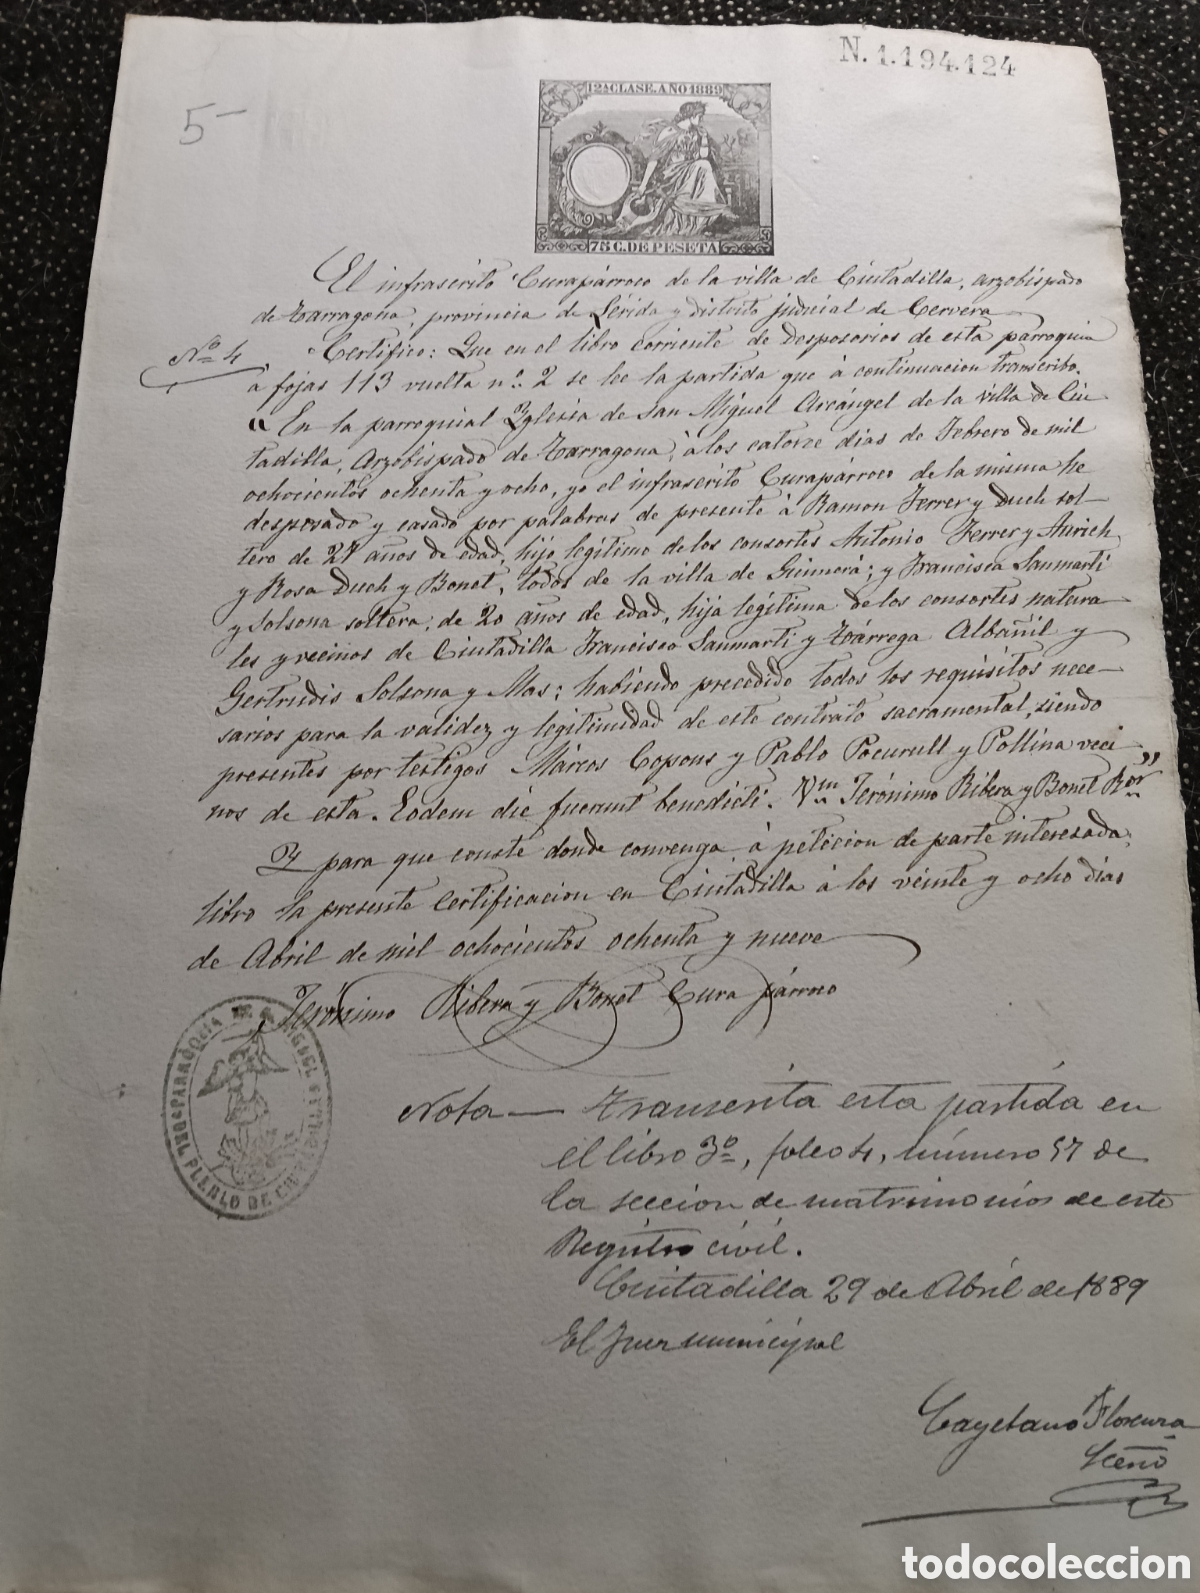 N. 1.194.124
5-
12ª CLASE. AÑO 1889
75 C. DE PESETA
El infrascrito Curapárroco de la villa de Ciutadilla, arzobispado
de Tarragona, provincia de Lérida y distrito judicial de Cervera
Nº 4
Certifico: Que en el libro corriente de desposorios de esta parroquia
á fojas 113 vuelta nº 2 se lee la partida que á continuacion transcribo.
"En la parroquial Yglesia de San Miguel Arcángel de la villa de Ciu
tadilla, Arzobispado de Tarragona, á los catorze dias de Febrero de mil
ochocientos ochenta y ocho, yo el infrascrito Curapárroco de la misma he
desposado y casado por palabras de presente á Ramon Ferrer y Duch sol-
tero de 27 años de edad, hijo legítimo de los consortes Antonio Ferrer y
y Rosa Duch y Bonet, todos de la villa de Guimerá; y Francisca Sanmartí
y Solsona soltera, de 20 años de edad, hija legítima de los consortes natura
les y vecinos de Ciutadilla Francisco Sanmartí y Tárrega Albañil y
Gertrudis Solsona y Mas; habiendo precedido todos los requisitos nece-
sarios para la validez y legitimidad de este contrato sacramental, siendo
presentes por testigos Márcos Copons y Pablo Pocurull y Pollina veci
nos de esta. Eodem die fuerunt benedicti. Jerónimo Ribera y Bonet Ror"
Y para que conste donde convenga, á peticion de parte interesada,
libro la presente certificacion en Ciutadilla á los veinte y ocho dias
de Abril de mil ochocientos ochenta y nueve
Jerónimo Ribera y Bonet Cura párroco
PARRÓQUIA DE S. MIGUEL
DEL PUEBLO DE
Nota — Transcrita esta partida en
el libro 3º, foleo 4, número 57 de
la seccion de matrimonios de este
Registro civil.
Ciutadilla 29 de Abril de 1889
El Juez municipal
Cayetano
todocoleccion